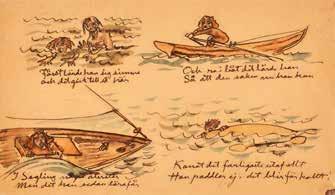 Först lärde han sig simma
och det gick till så här
Och ro i båt det lärde han
Så att den saken nu han kan
I Segling
Men det kan sedan lära
Kanot det farligaste utaf allt
Han paddlar ej, det blir för kallt